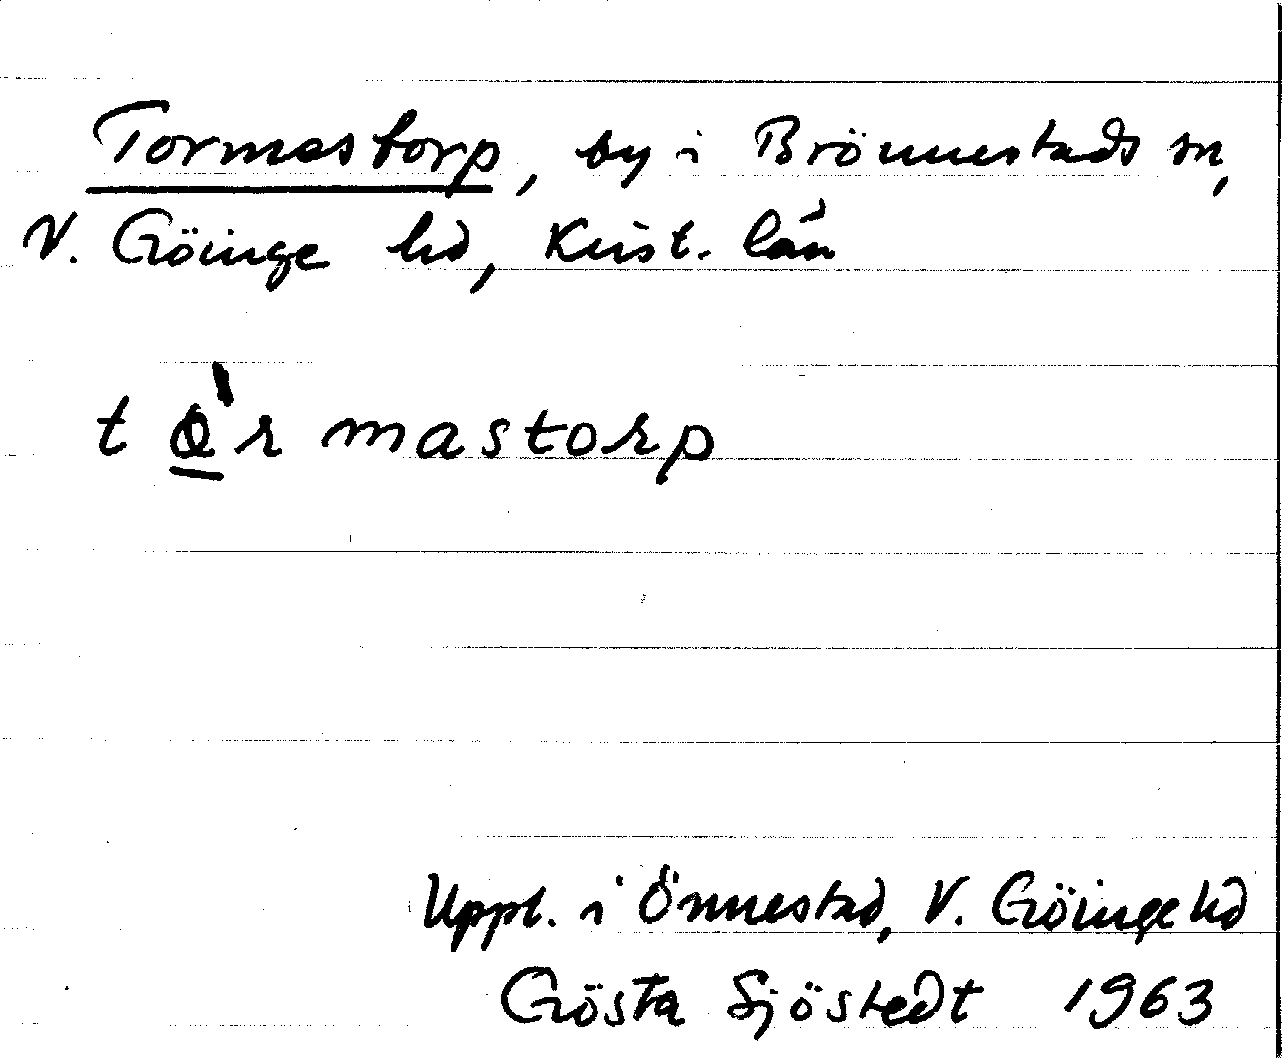 Tormastorp, by i Brönnestads sn,
V. Göinge hd, Krist. län
t ò̲r mastorp
Uppt. i Önnestad, V. Göinge hd
Gösta Sjöstedt 1963